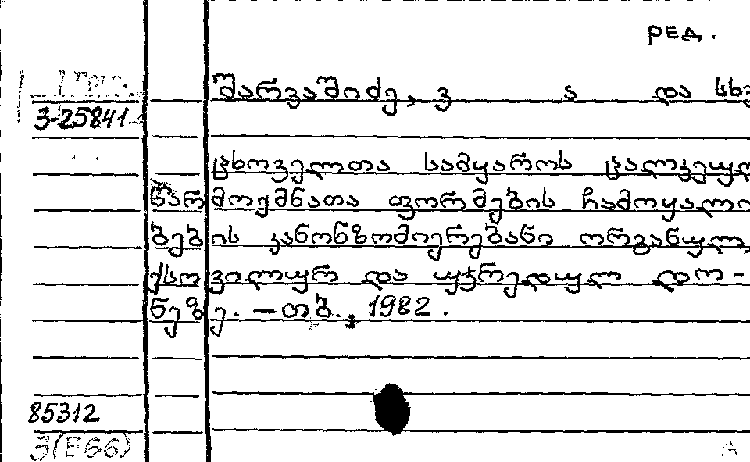 ред.
შარვაშიძე, ვ ა და სხვ
3-25841
ცხოველთა სამყაროს ცალკეულ
წარმოქმნათა ფორმების ჩამოყალი
ბების კანონზომიერებანი ორგანულ,
ქსოვილურ და უჯრედულ დო-
ნეზე. — თბ., 1982.
85312
3(Е66)